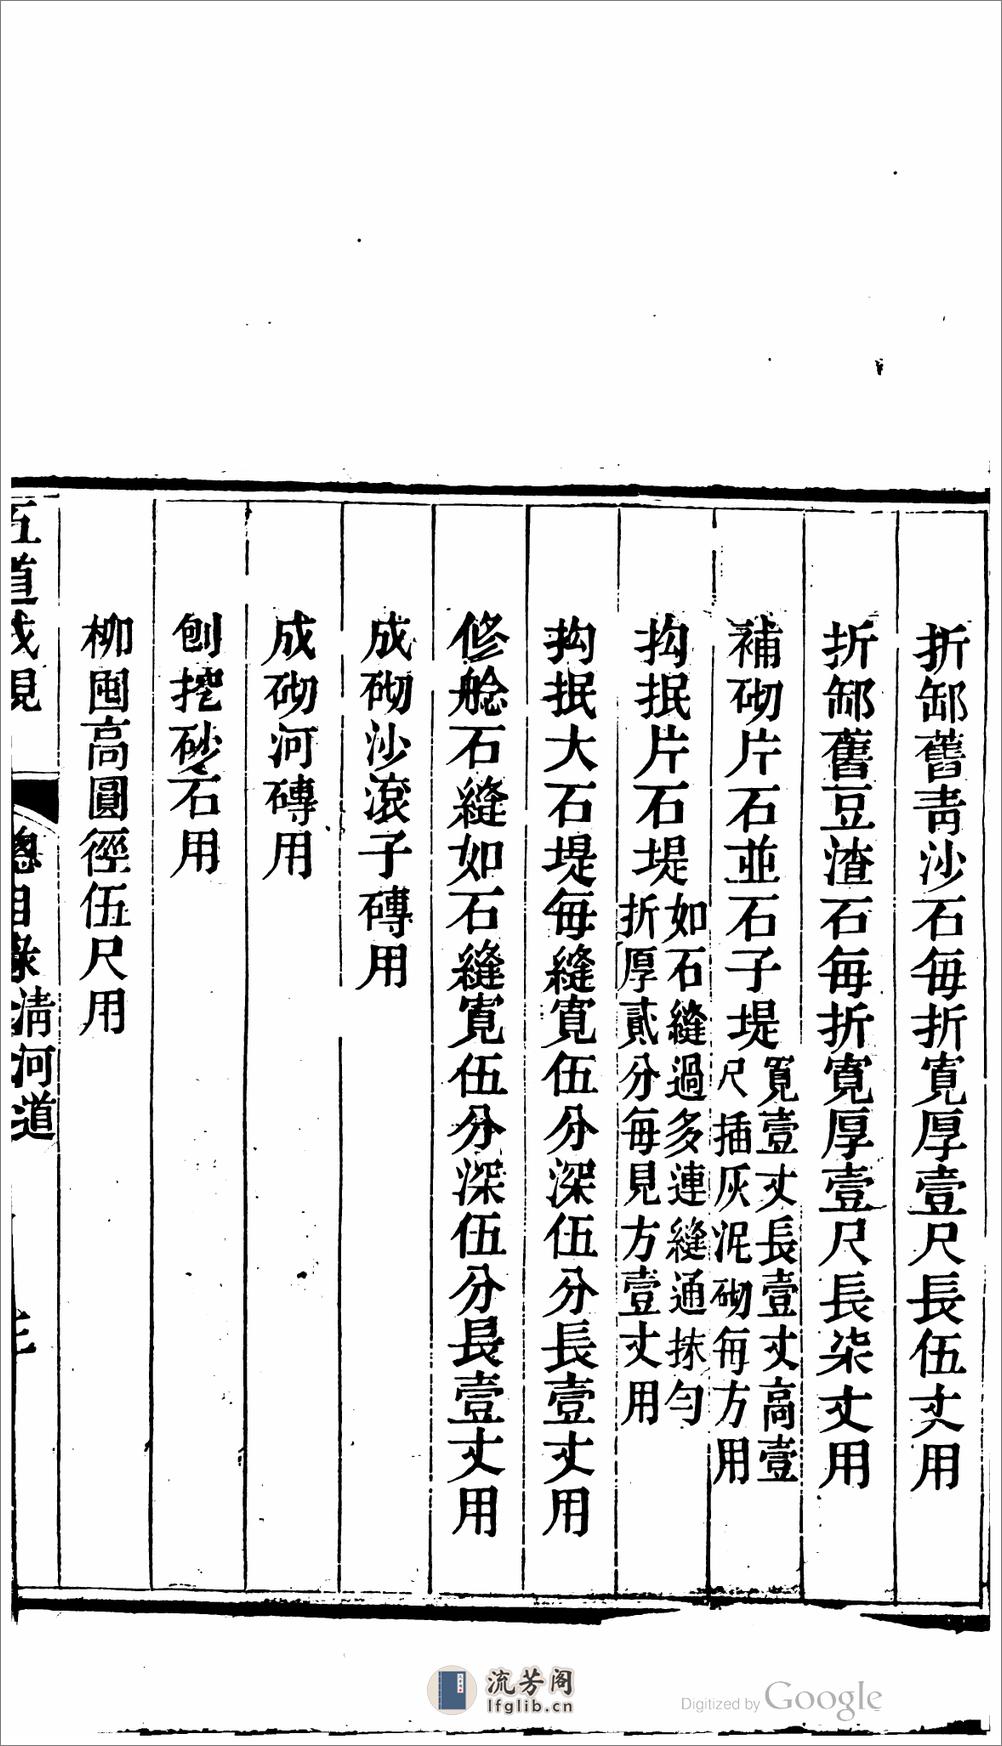 折卸舊青沙石每折寬厚壹尺長伍丈用
折卸舊豆渣石每折寬厚壹尺長柒丈用
補砌片石並石子堤寬壹丈長壹丈高壹
尺插灰泥砌每方用
抅抿片石堤如石縫過多連縫通抹勻
折厚貳分每見方壹丈用
抅抿大石堤每縫寬伍分深伍分長壹丈用
修艌石縫如石縫寬伍分深伍分長壹丈用
成砌沙滾子磚用
成砌河磚用
刨挖砂石用
柳囤高圓徑伍尺用
五道成規 總目錄 清河道
流芳阁
lfglib.cn
Digitized by Google